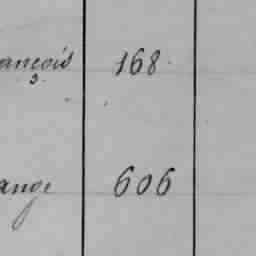 ançois 168
ange 606